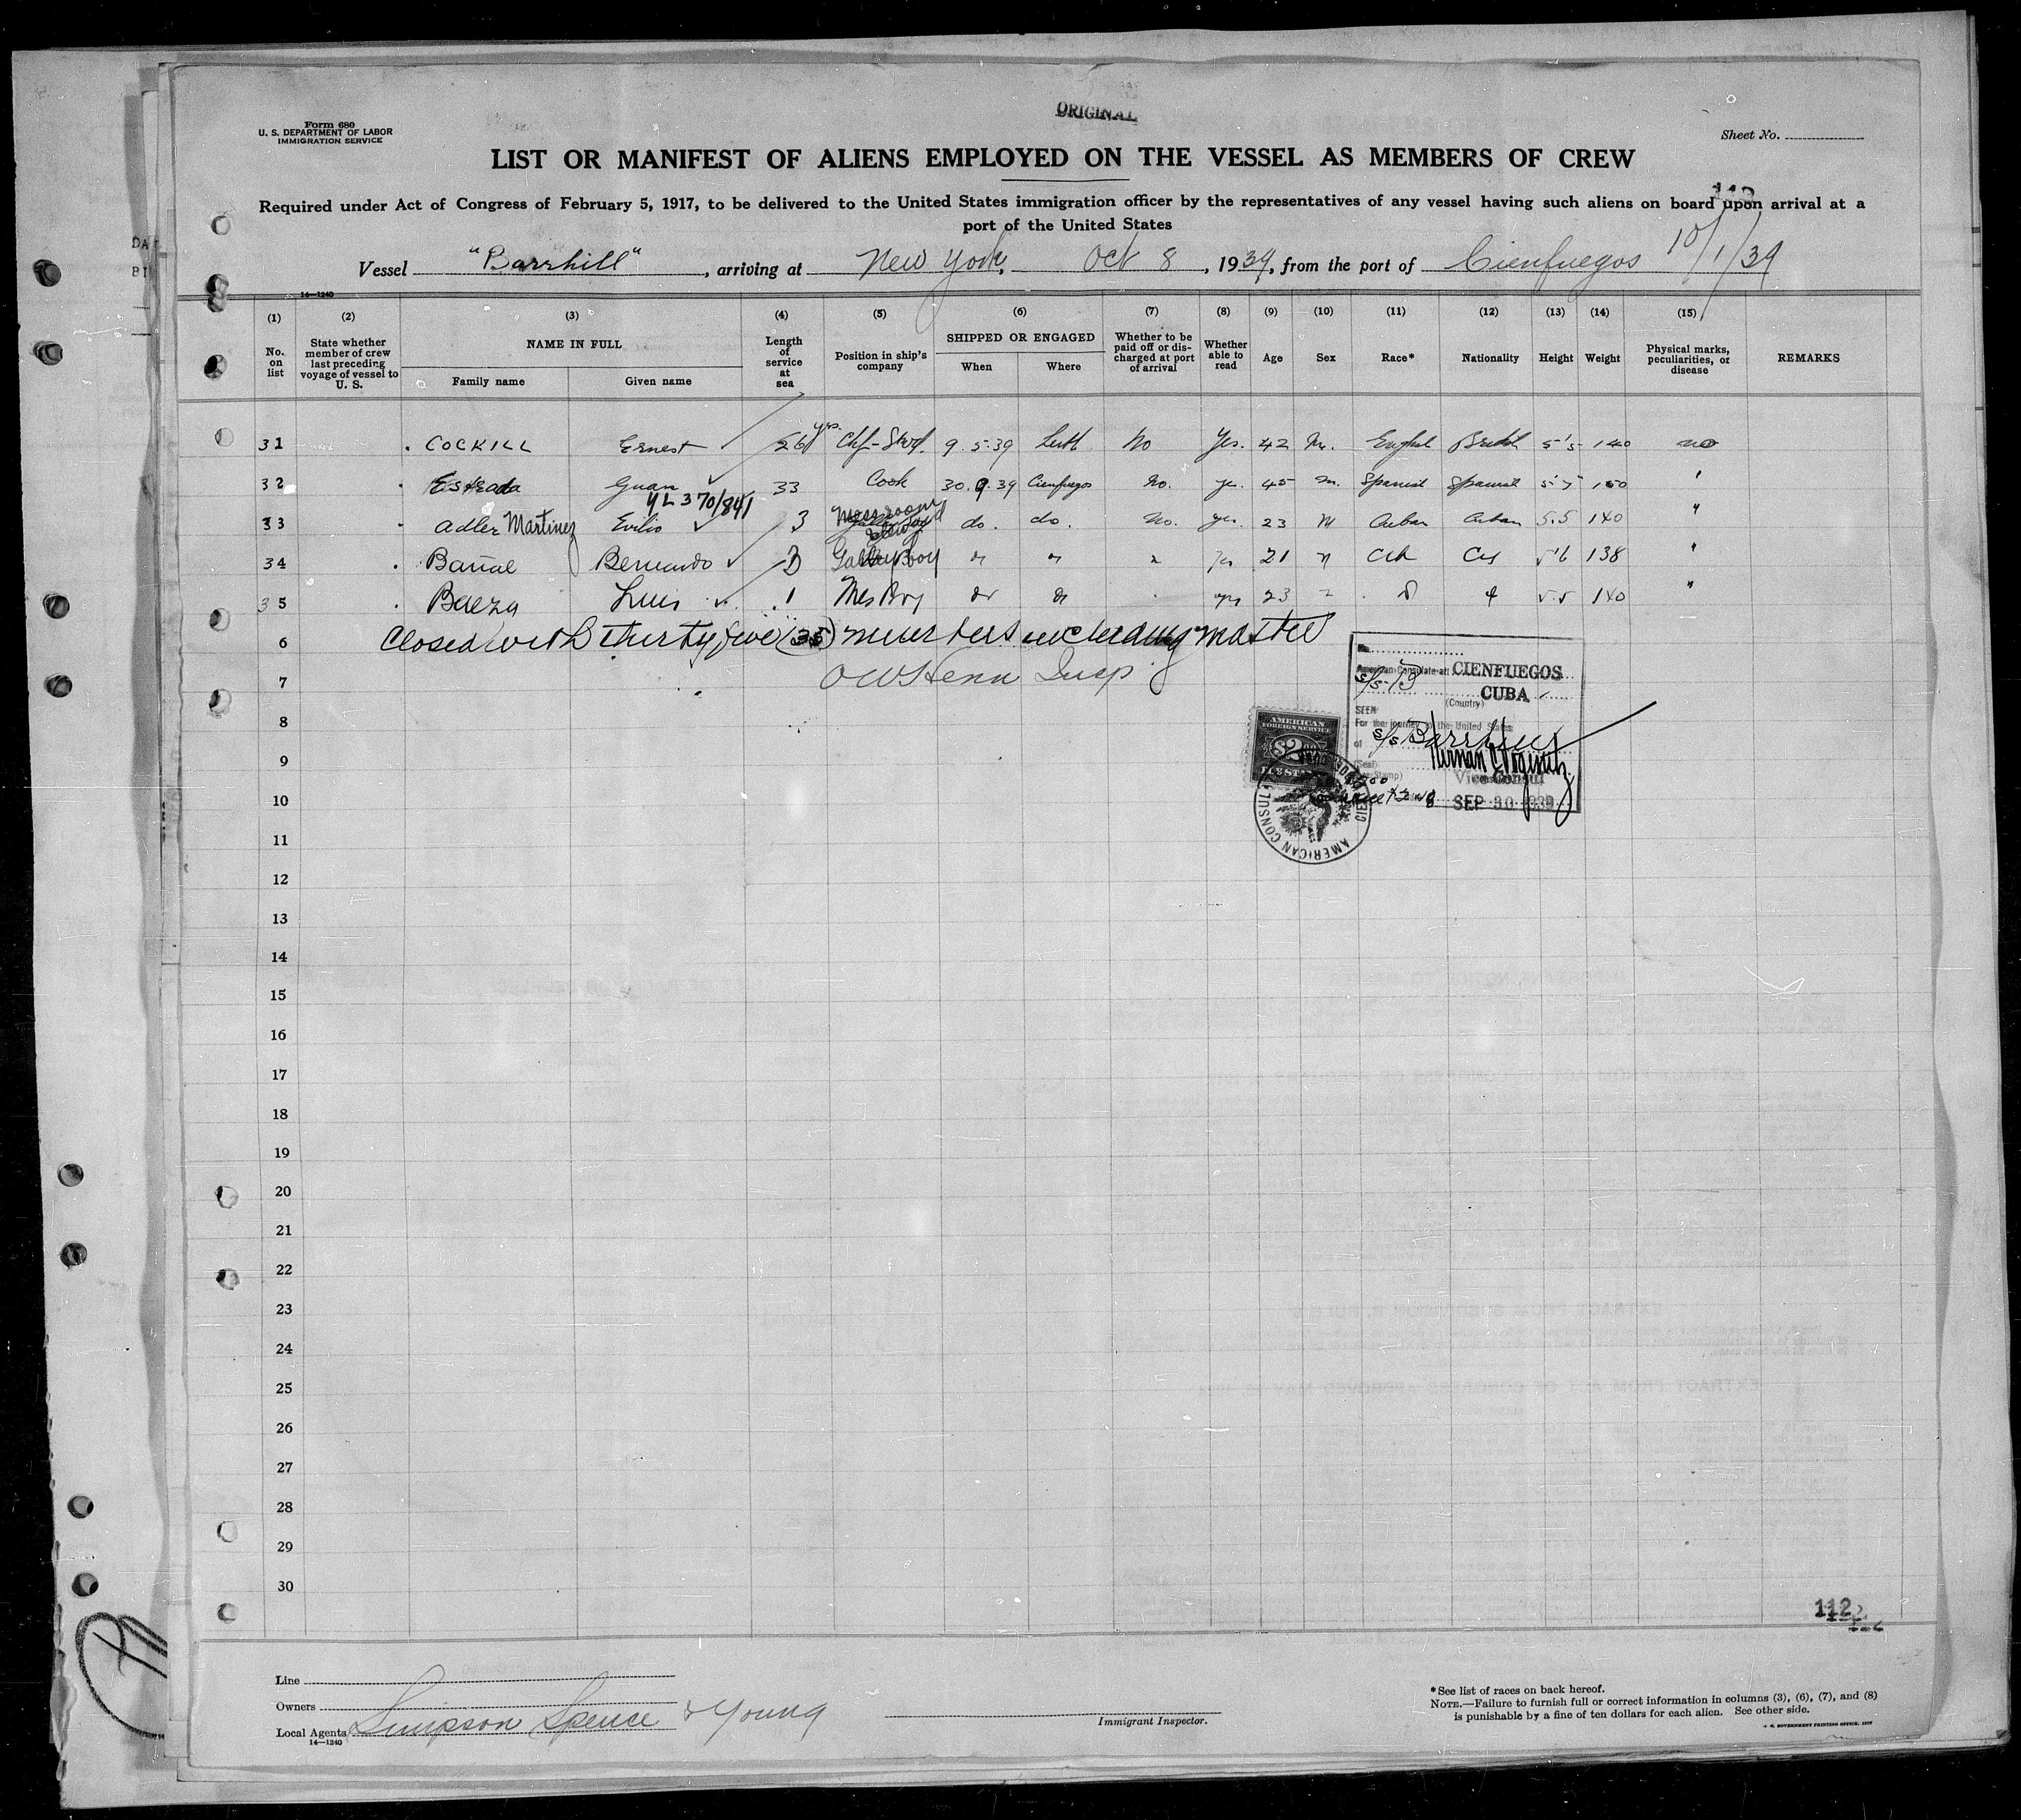 ORIGINAL
Form 680
U. S. DEPARTMENT OF LABOR
IMMIGRATION SERVICE
Sheet No.
LIST OR MANIFEST OF ALIENS EMPLOYED ON THE VESSEL AS MEMBERS OF CREW
112
Required under Act of Congress of February 5, 1917, to be delivered to the United States immigration officer by the representatives of any vessel having such aliens on board upon arrival at a
port of the United States
Vessel "Barrhill", arriving at New York, Oct 8, 1939, from the port of Cienfuegos 10/1/39
14—1240
(1) (2) (3) (4) (5) (6) (7) (8) (9) (10) (11) (12) (13) (14) (15)
No. on list
State whether member of crew last preceding voyage of vessel to U. S.
NAME IN FULL
Family name
Given name
Length of service at sea
Position in ship's company
SHIPPED OR ENGAGED
When
Where
Whether to be paid off or discharged at port of arrival
Whether able to read
Age
Sex
Race*
Nationality
Height
Weight
Physical marks, peculiarities, or disease
REMARKS
31 COCKILL Ernest 26 yrs. Chf-Stwd. 9.5.39 Leith No Yes. 42 M. English British 5'5 140 no
32 Estrada Guan 33 Cook 30.9.39 Cienfuegos No. yes. 45 m. Spanish Spanish 5'7 150 "
YL 370/841
33 Adler Martinez Evilio 3 Messroom do. do. No. yes. 23 M Cuban Cuban 5.5 140 "
34 Bernardo 3 Galley Boy " " " yes 21 5'6 138 "
35 Baeza Luis 1 Mes Boy yes 23 5.5 140 "
6 Closed with thirty five (35) members including master
7 Insp.
8
9
10
11
12
13
14
15
16
17
18
19
20
21
22
23
24
25
26
27
28
29
30
No.
American Consulate at: CIENFUEGOS
CUBA
(Country)
SEEN
For the journey to the United States
of S/S Barrhill
(Seal)
Vice Consul
SEP 30 1939
AMERICAN
FOREIGN SERVICE
$2
FEE STAMP
AMERICAN CONSUL
112
Line
Owners
Local Agents Simpson Spence & Young
14—1240
Immigrant Inspector.
*See list of races on back hereof.
NOTE.—Failure to furnish full or correct information in columns (3), (6), (7), and (8)
is punishable by a fine of ten dollars for each alien. See other side.
U. S. GOVERNMENT PRINTING OFFICE